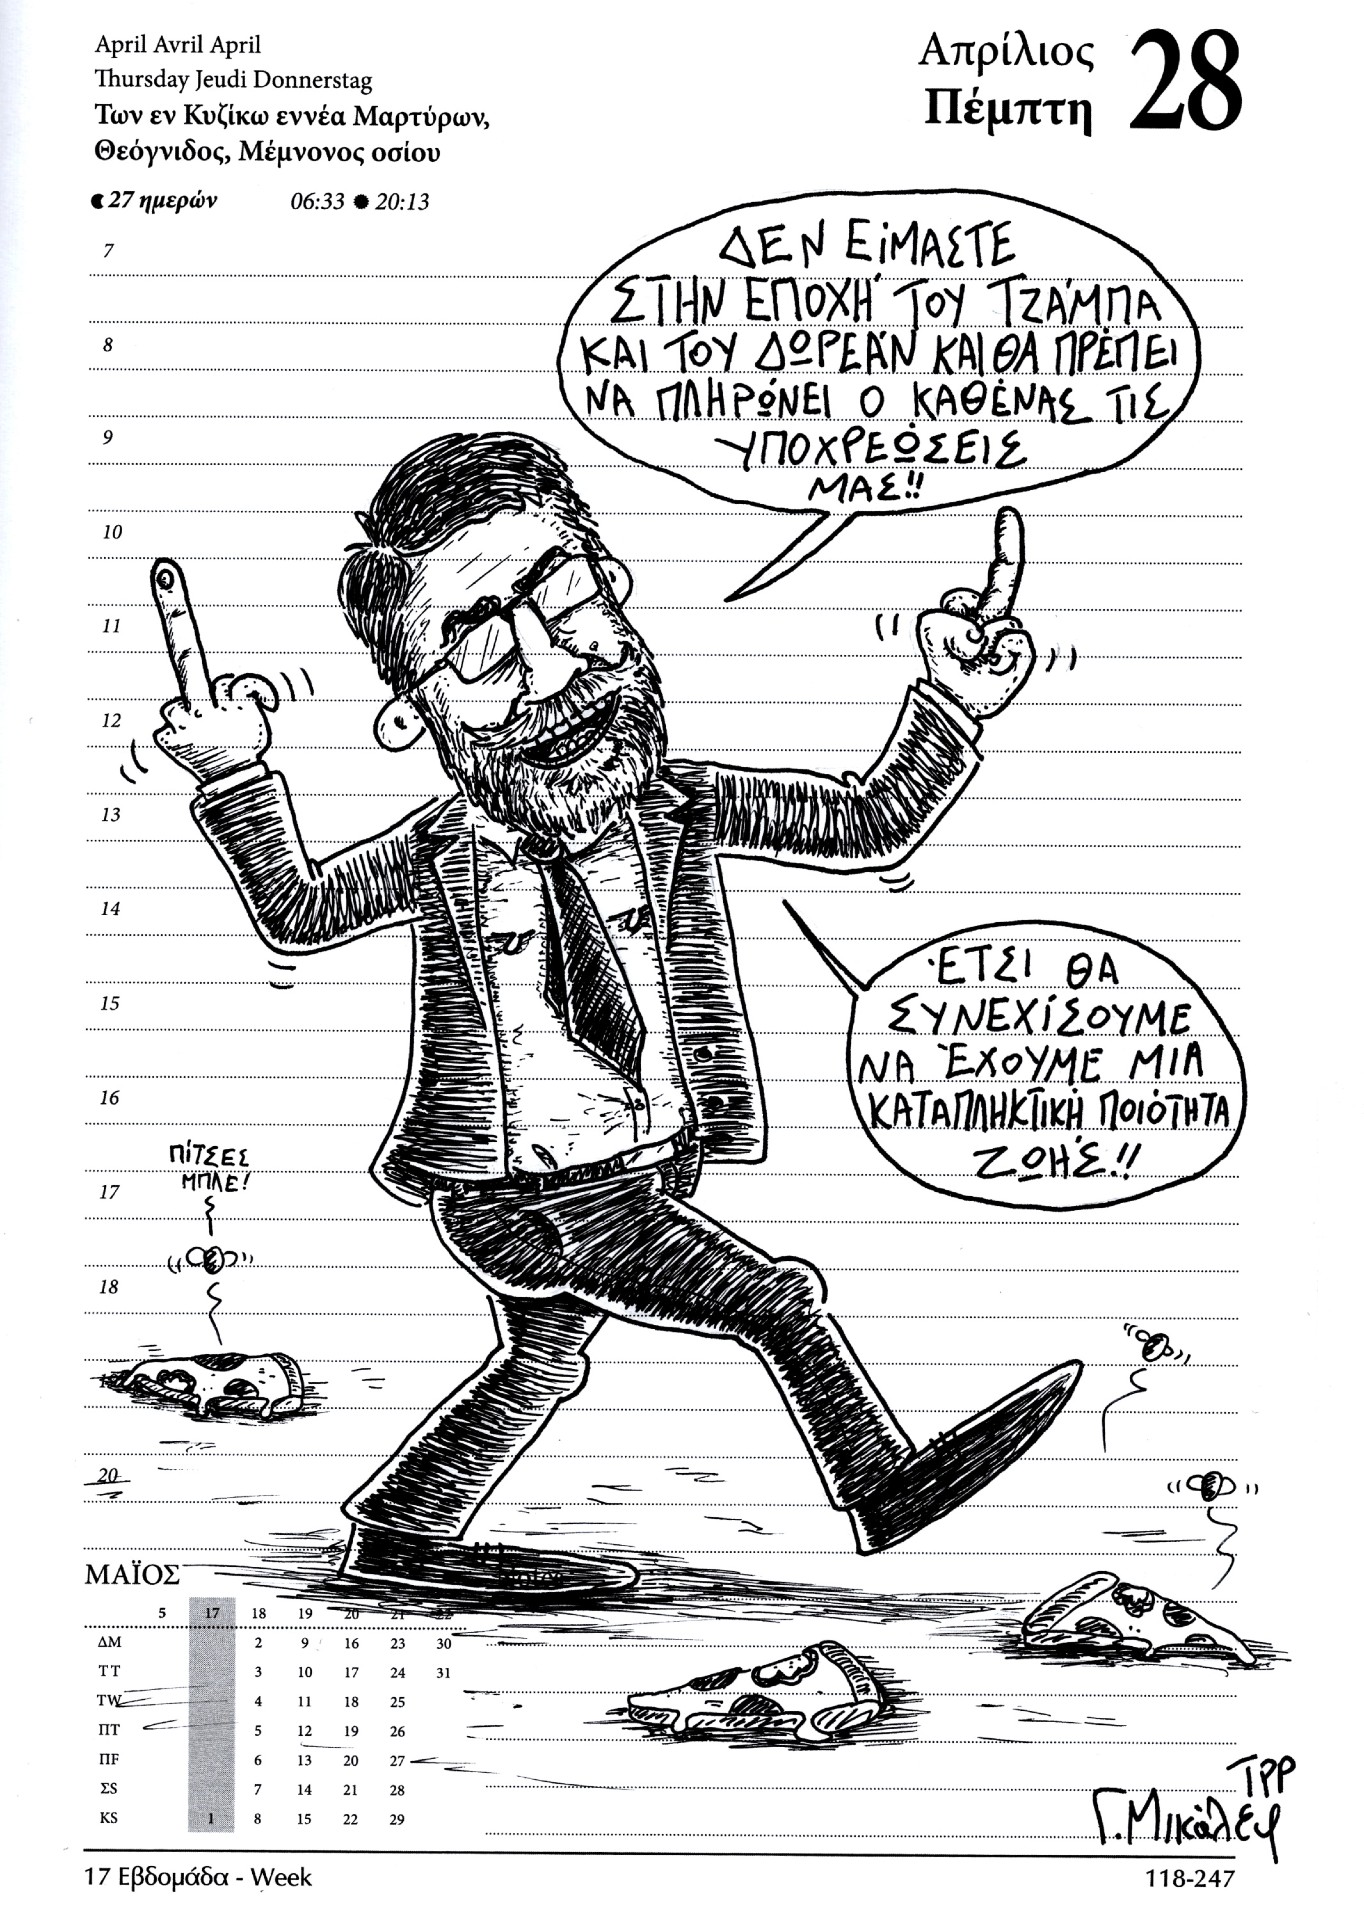 April Avril April
Thursday Jeudi Donnerstag
Των εν Κυζίκω εννέα Μαρτύρων,
Θεόγνιδος, Μέμνονος οσίου
27 ημερών 06:33 20:13
Απρίλιος
Πέμπτη
28
ΔΕΝ ΕίΜΑΣΤΕ
ΣΤΗΝ ΕΠΟΧΉ ΤΟΥ ΤΖΆΜΠΑ
ΚΑΙ ΤΟΥ ΔΩΡΕΆΝ ΚΑΙ ΘΑ ΠΡΈΠΕΙ
ΝΑ ΠΛΗΡΏΝΕΙ Ο ΚΑΘΈΝΑΣ ΤΙΣ
ΥΠΟΧΡΕΏΣΕΙΣ
ΜΑΣ!!
7
8
9
10
11
12
13
14
15
16
17
18
20
ΈΤΣΙ ΘΑ
ΣΥΝΕΧΊΣΟΥΜΕ
ΝΑ ΈΧΟΥΜΕ ΜΙΑ
ΚΑΤΑΠΛΗΚΤΙΚΉ ΠΟΙΌΤΗΤΑ
ΖΩΉΣ!!
ΠΊΤΣΕΣ
ΜΠΛΕ!
ΜΑΪΟΣ
5 17 18 19 20 21 22
ΔΜ 2 9 16 23 30
ΤΤ 3 10 17 24 31
TW 4 11 18 25
ΠΤ 5 12 19 26
ΠF 6 13 20 27
ΣS 7 14 21 28
ΚS 1 8 15 22 29
ΤΡΡ
Γ.Μικάλεφ
17 Εβδομάδα - Week
118-247